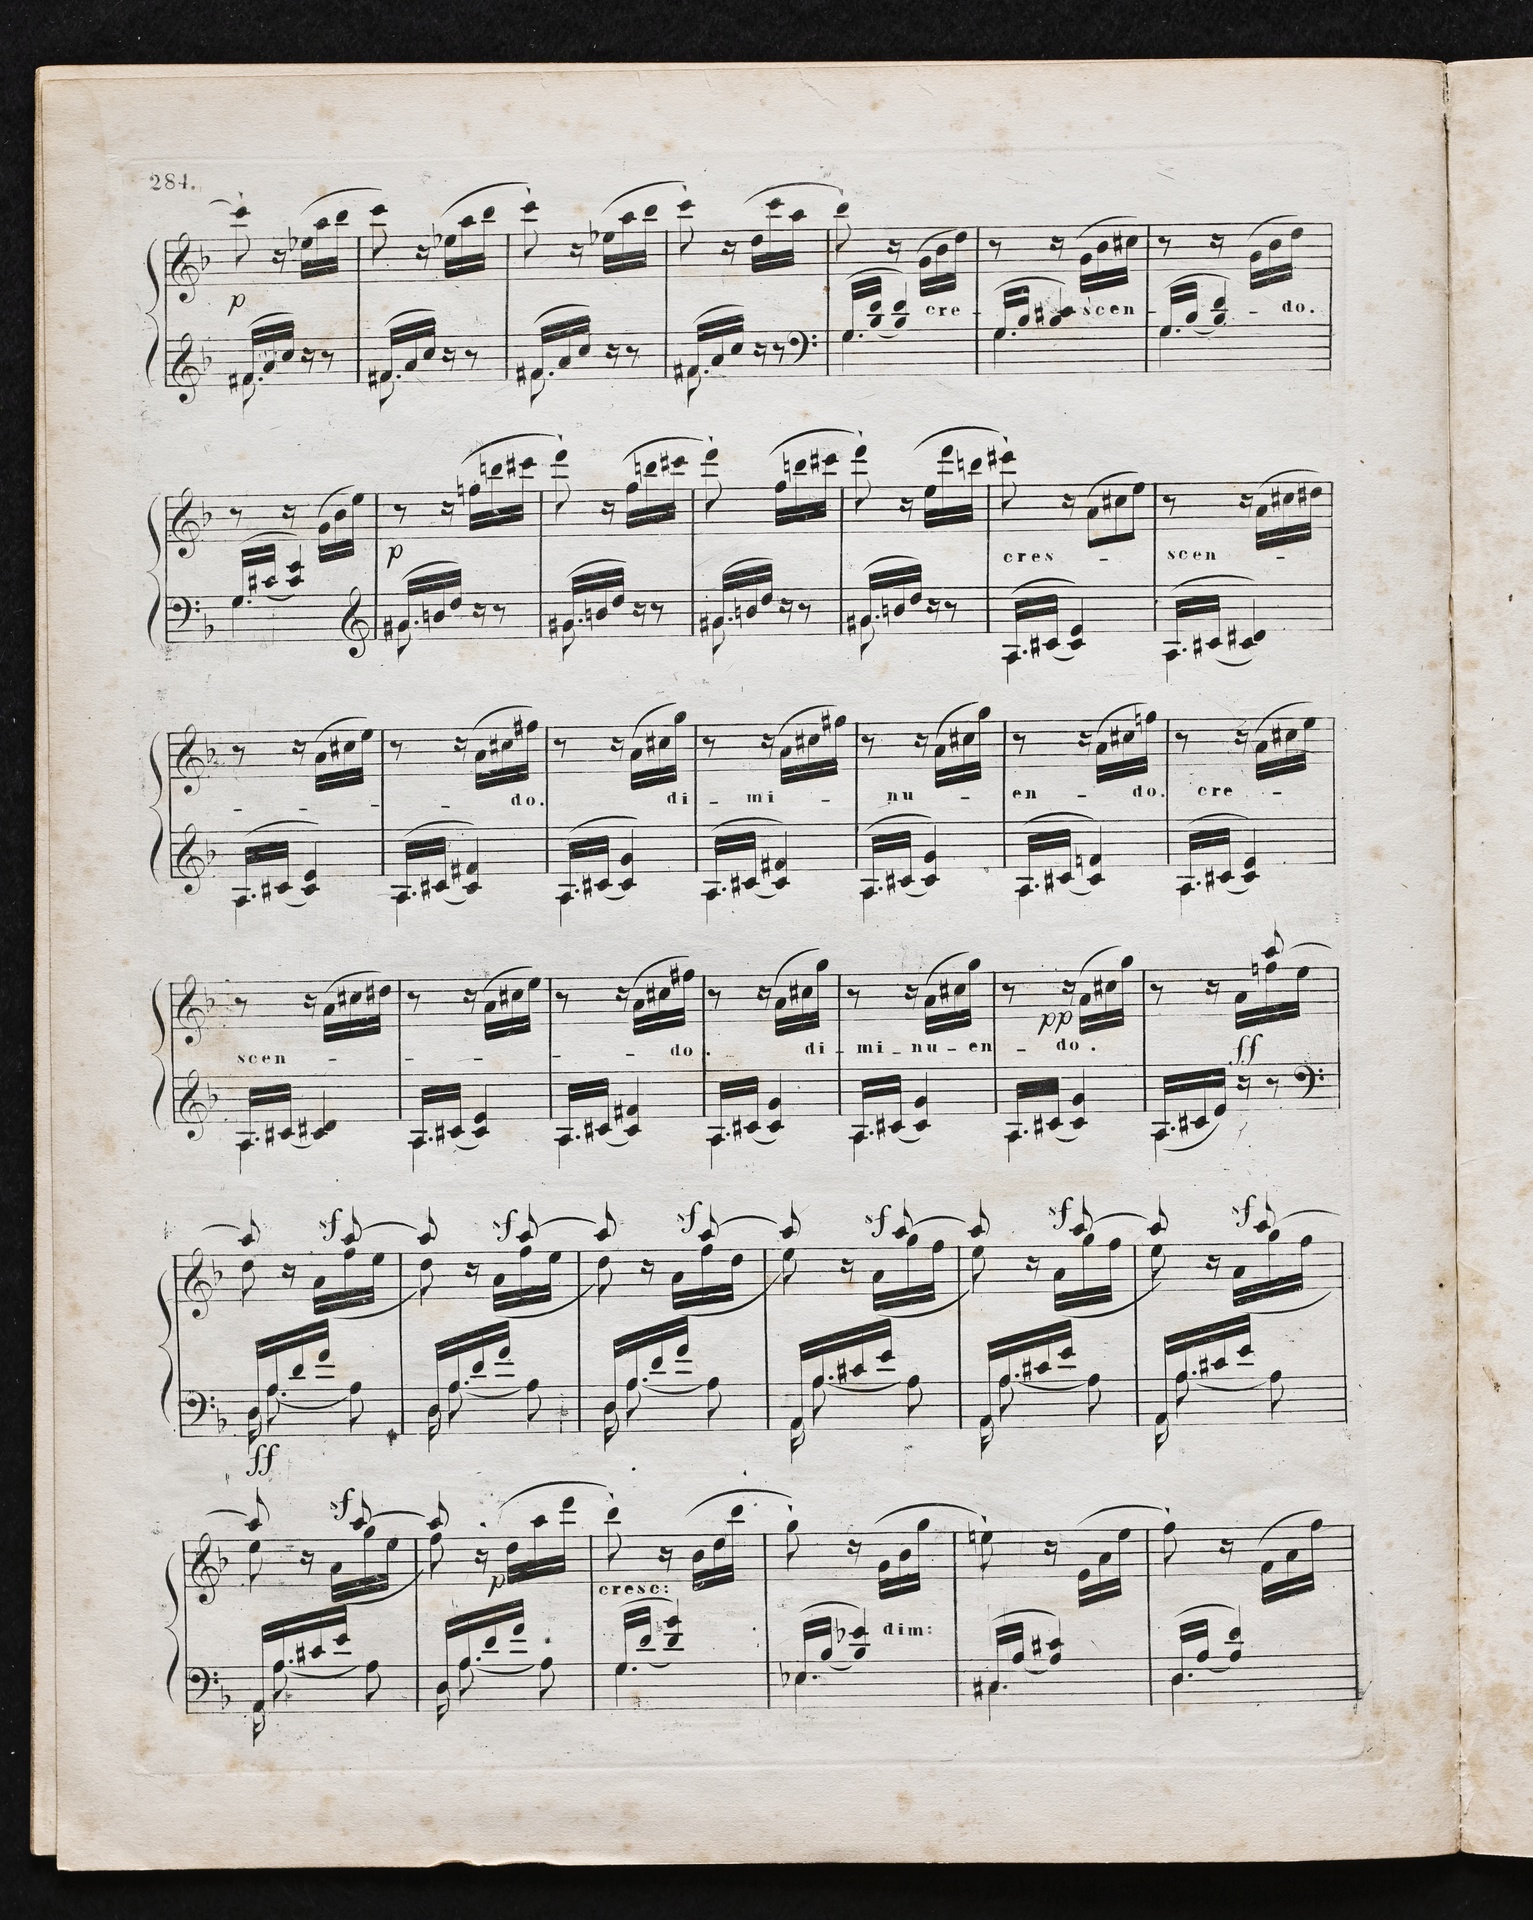 284.
p cre - scen - do.
p cres - scen -
- - - - do. di - mi - nu - en - do. cre -
scen - - - - - - do. di - mi - nu - en - do.
pp ff
sf sf sf sf sf sf
ff
sf p cresc: dim: